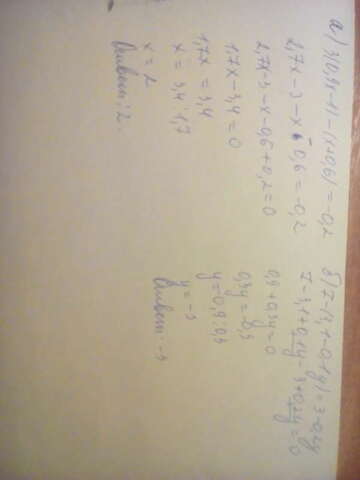 а) 3(0,9x-1)-(x+0,6)=-0,2
2,7x-3-x-0,6=-0,2
2,7x-3-x-0,6+0,2=0
1,7x-3,4=0
1,7x=3,4
x=3,4:1,7
x=2
Ответ: 2.
б) 7-(3,1-0,1y)=3-0,2y
7-3,1+0,1y-3+0,2y=0
0,9+0,3y=0
0,3y=-0,9
y=0,9:0,3
y=-3
Ответ: -3